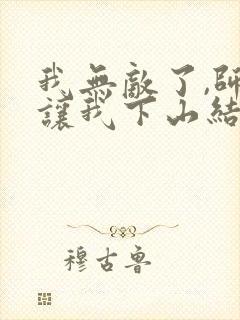 我無敵了,師
讓我下山結
穆古魯